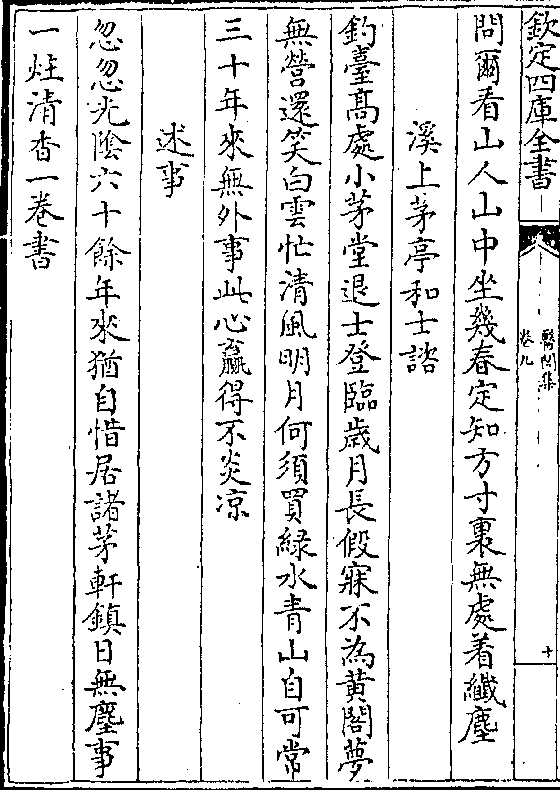 欽定四庫全書
醫閭集
卷九
十
問爾看山人山中坐幾春定知方寸裏無處着纖塵
溪上茅亭和士諮
釣臺髙處小茅堂退士登臨歲月長假寐不為黄閣夢
無營還笑白雲忙清風明月何須買緑水青山自可常
三十年來無外事此心贏得不炎凉
述事
忽忽光陰六十餘年來猶自惜居諸茅軒鎮日無塵事
一炷清香一卷書